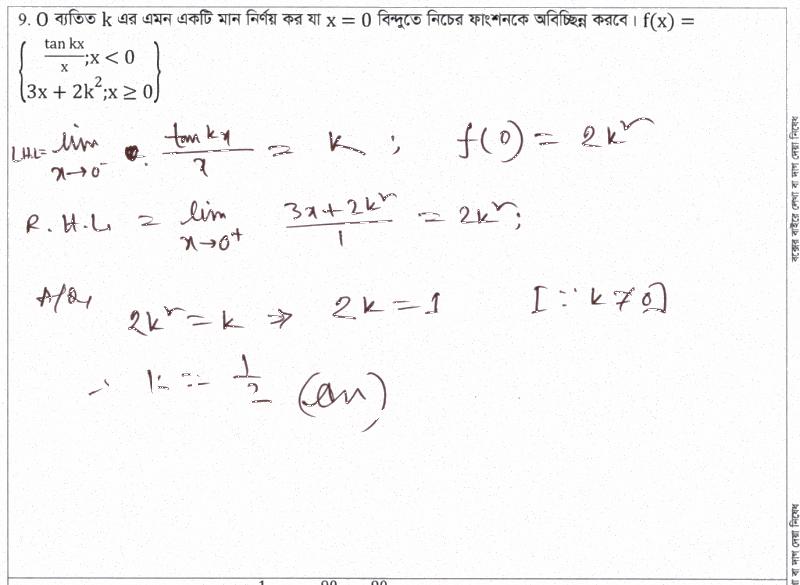 9. O ব্যতিত k এর এমন একটি মান নির্ণয় কর যা x = 0 বিন্দুতে নিচের ফাংশনকে অবিচ্ছিন্ন করবে। f(x) =
{ tan kx / x ;x < 0
3x + 2k²;x ≥ 0 }
L.H.L = lim x→0⁻ tan kx / x = k ; f(0) = 2k²
R.H.L = lim x→0⁺ 3x+2k² / 1 = 2k²;
A/Q, 2k² = k ⇒ 2k = 1 [∵ k ≠ 0]
∴ k = 1/2 (an)
বক্সের বাইরে লেখা বা দাগ দেয়া নিষেধ
া বা দাগ দেয়া নিষেধ